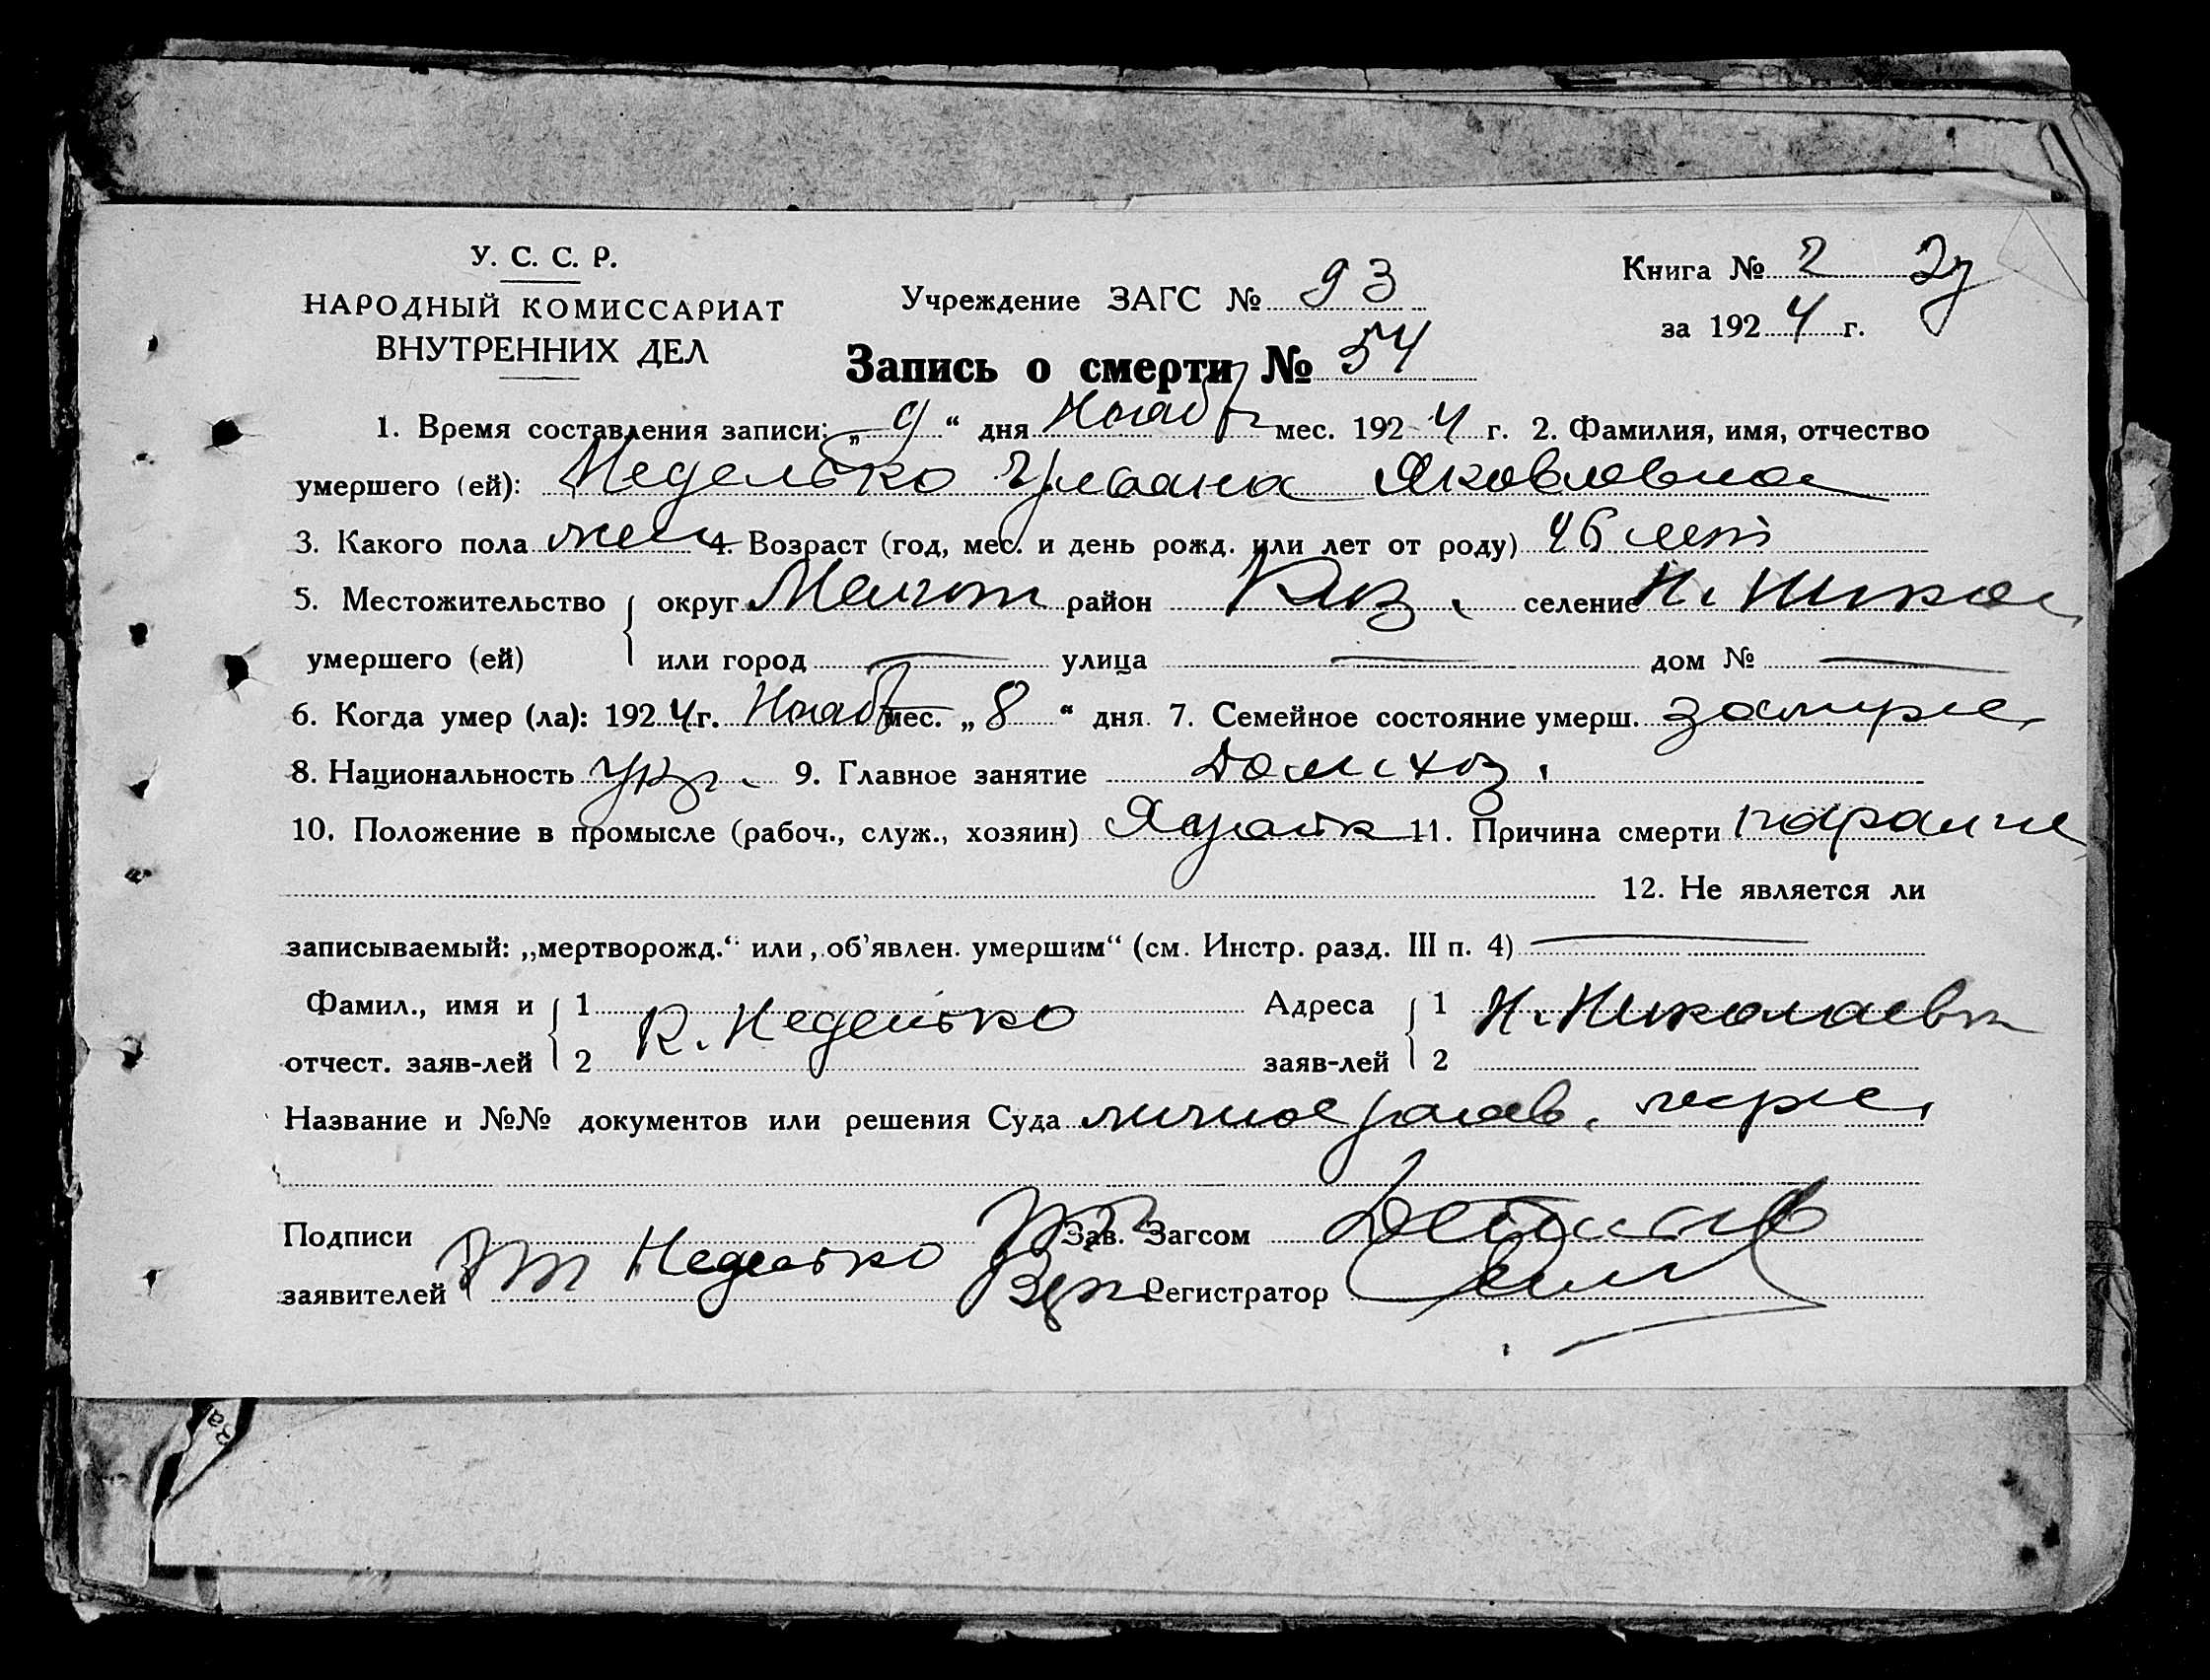 У. С. С. Р.
НАРОДНЫЙ КОМИССАРИАТ
ВНУТРЕННИХ ДЕЛ
Учреждение ЗАГС № 93
Книга № 2
за 1924 г.
Запись о смерти № 54
1. Время составления записи: „9“ дня Нояб мес. 1924 г. 2. Фамилия, имя, отчество
умершего (ей): Неделько Ульяна Яковлевна
3. Какого пола жен 4. Возраст (год, мес. и день рожд. или лет от роду) 46 лет
5. Местожительство округ Мелит район селение Н. Никол
умершего (ей) или город — улица — дом № —
6. Когда умер (ла): 1924 г. Нояб мес. „8“ дня. 7. Семейное состояние умерш. замуж.
8. Национальность укр. 9. Главное занятие Дом. хоз.
10. Положение в промысле (рабоч., служ., хозяин) Хозяйк 11. Причина смерти
12. Не является ли
записываемый: „мертворожд.“ или „об’явлен. умершим“ (см. Инстр. разд. III п. 4) —
Фамил., имя и 1 К. Неделько Адреса 1 Н. Николаевк
отчест. заяв-лей 2 заяв-лей 2
Название и №№ документов или решения Суда личное заяв. мужа
Подписи Зав. Загсом
заявителей Неделько Регистратор